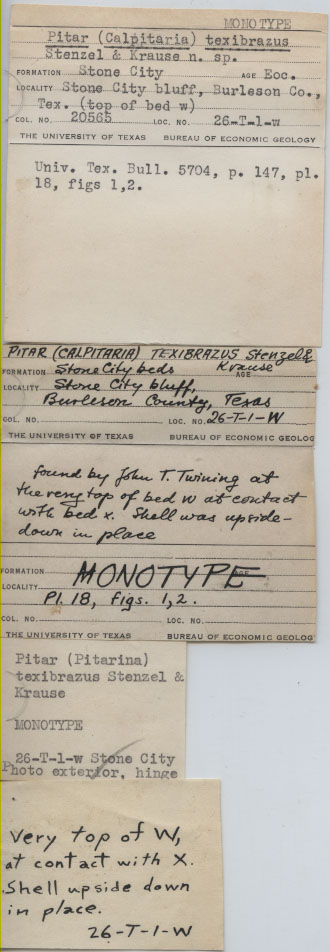 MONOTYPE
Pitar (Calpitaria) texibrazus
Stenzel & Krause n. sp.
FORMATION Stone City AGE Eoc.
LOCALITY Stone City bluff, Burleson Co.,
Tex. (top of bed w)
COL. NO. 20565 LOC. NO. 26-T-1-w
THE UNIVERSITY OF TEXAS BUREAU OF ECONOMIC GEOLOGY
Univ. Tex. Bull. 5704, p. 147, pl.
18, figs 1,2.
PITAR (CALPITARIA) TEXIBRAZUS Stenzel &
Krause
FORMATION Stone City beds AGE
LOCALITY Stone City bluff,
Burleson County, Texas
COL. NO. LOC. NO. 26-T-1-W
THE UNIVERSITY OF TEXAS BUREAU OF ECONOMIC GEOLOG
found by John T. Twining at
the very top of bed w at contact
with bed x. Shell was upside-
down in place
FORMATION MONOTYPE AGE
LOCALITY
Pl. 18, figs. 1,2.
COL. NO. LOC. NO.
THE UNIVERSITY OF TEXAS BUREAU OF ECONOMIC GEOLOG
Pitar (Pitarina)
texibrazus Stenzel &
Krause
MONOTYPE
26-T-1-w Stone City
Photo exterior, hinge
Very top of W,
at contact with X.
Shell upside down
in place.
26-T-1-W